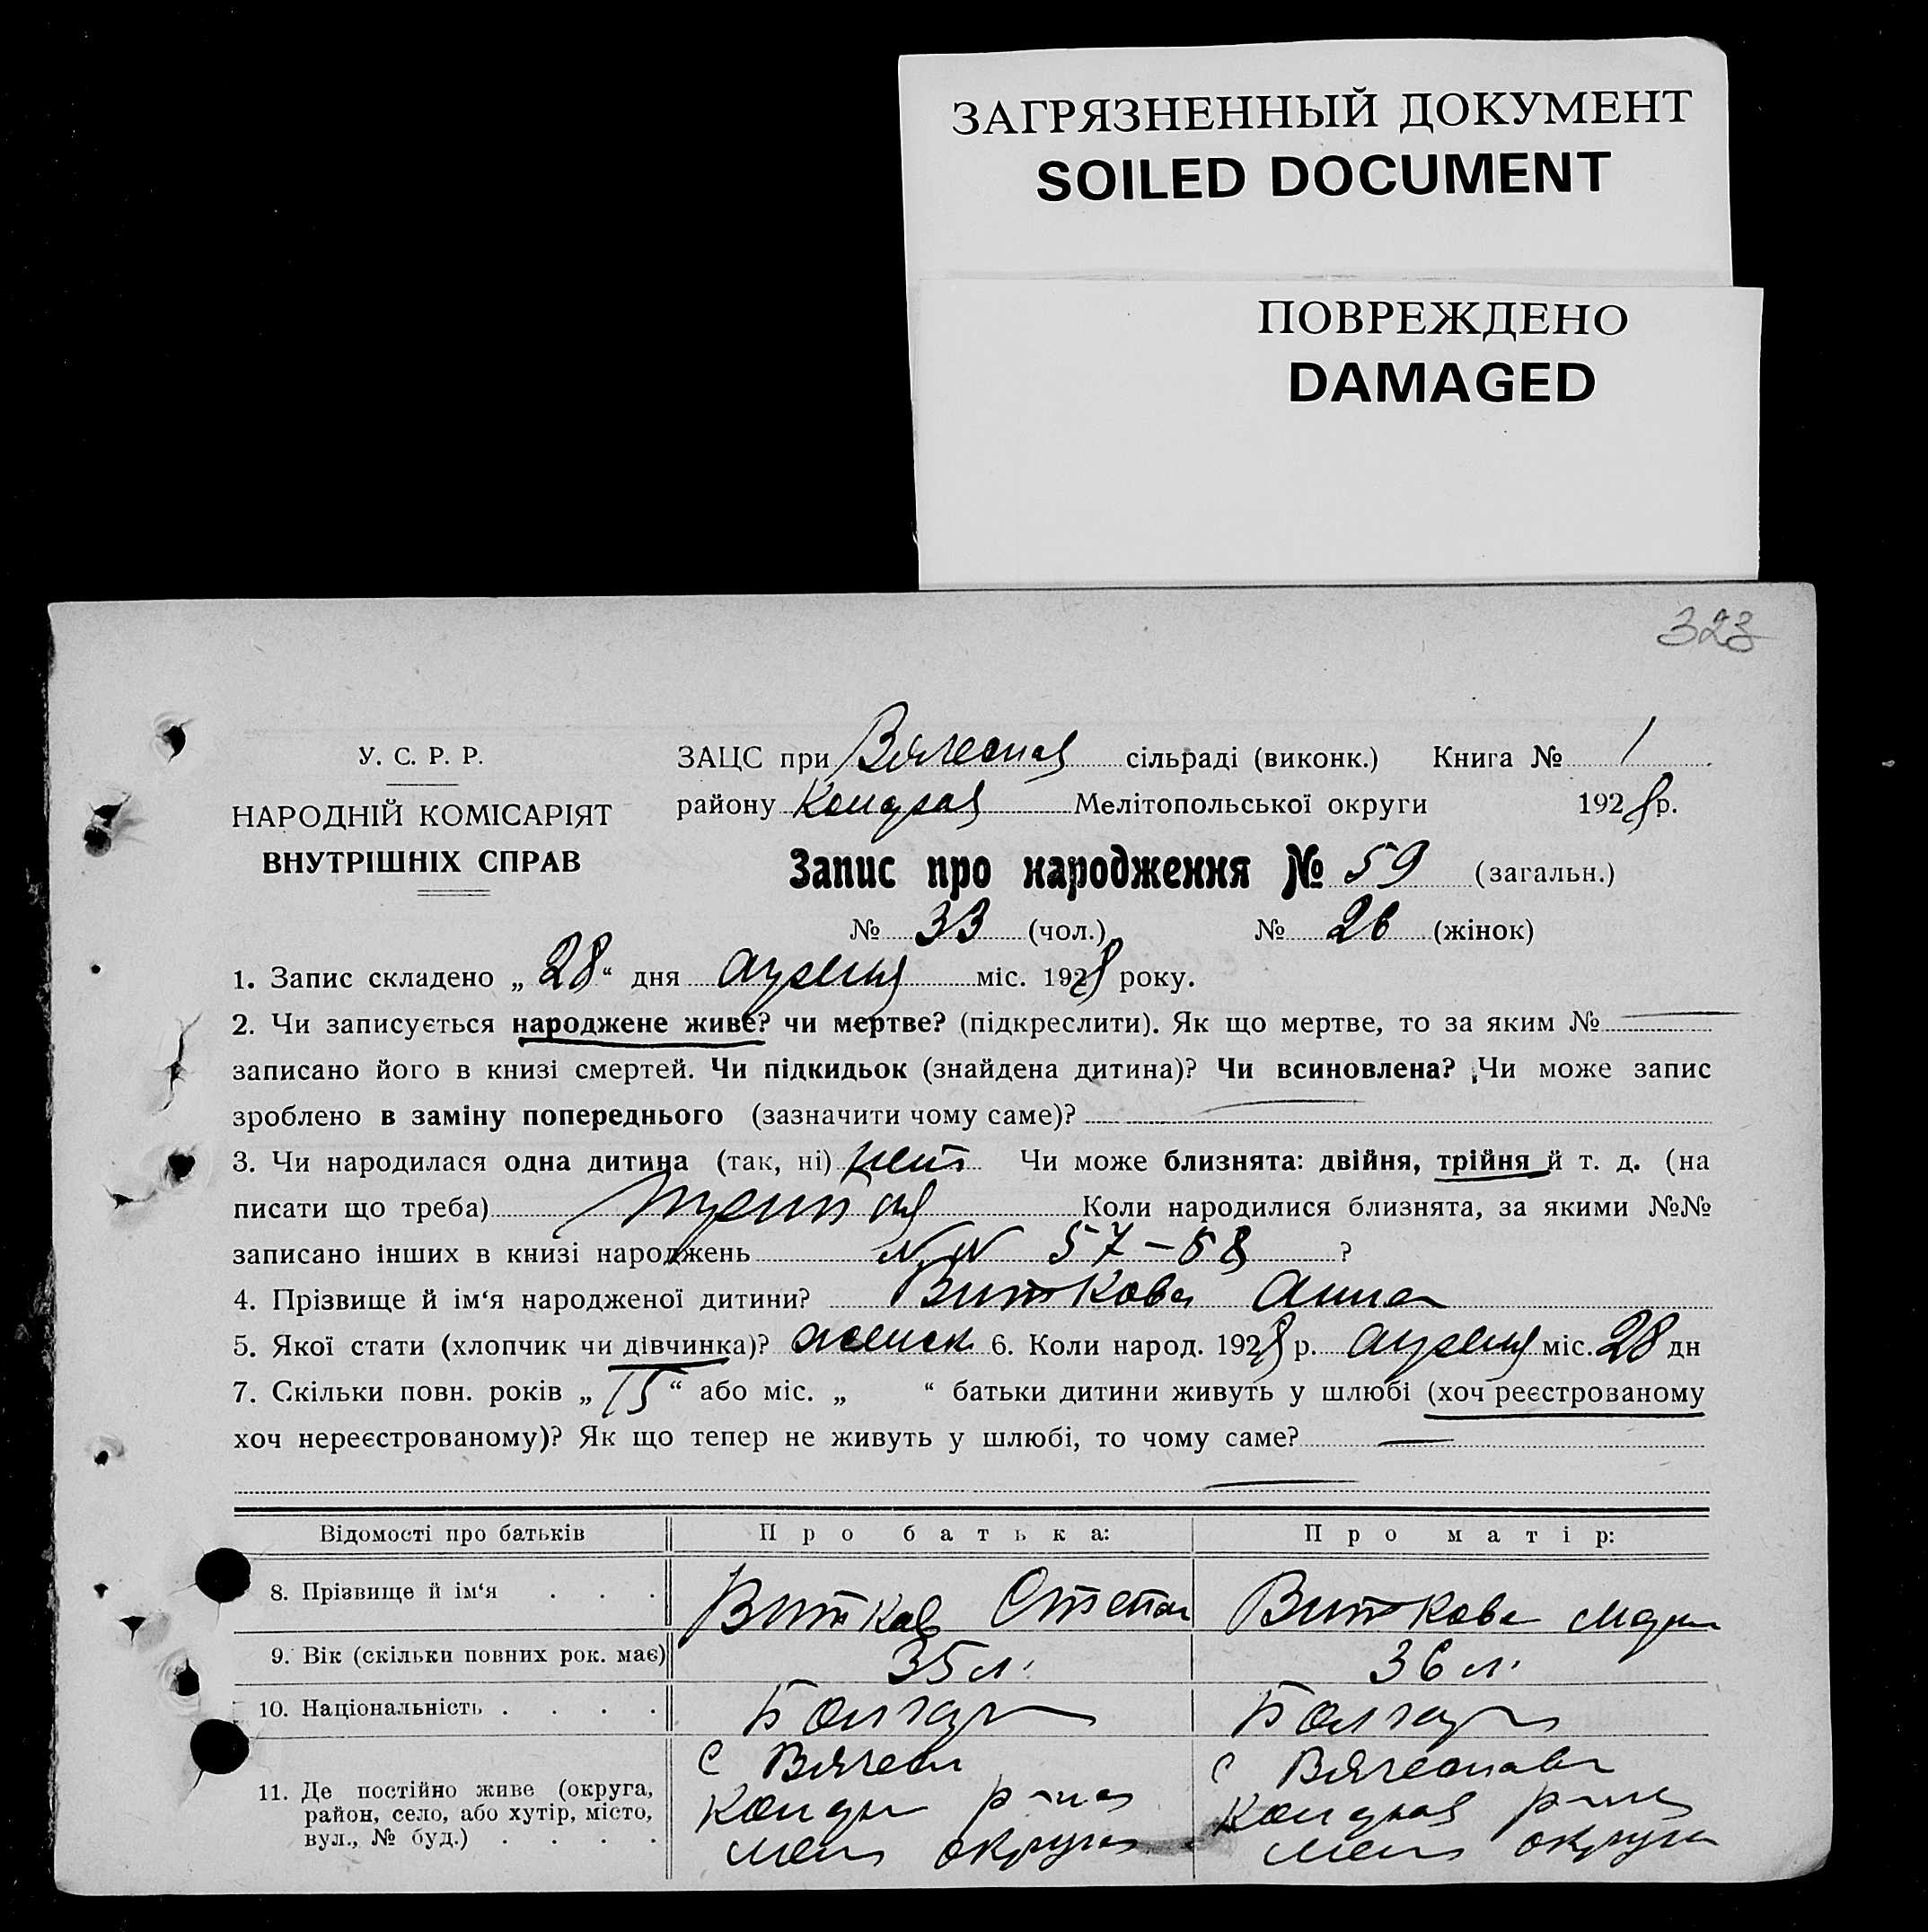 ЗАГРЯЗНЕННЫЙ ДОКУМЕНТ
SOILED DOCUMENT
ПОВРЕЖДЕНО
DAMAGED
323
У. С. Р. Р.
НАРОДНІЙ КОМІСАРІЯТ
ВНУТРІШНІХ СПРАВ
ЗАЦС при Вячеслав сільраді (виконк.) Книга № 1
району Мелітопольської округи 1928 р.
Запис про народження № 59 (загальн.)
№ 33 (чол.) № 26 (жінок)
1. Запис складено „ 28 “ дня міс. 1928 року.
2. Чи записується народжене живе? чи мертве? (підкреслити). Як що мертве, то за яким №
записано його в книзі смертей. Чи підкидьок (знайдена дитина)? Чи всиновлена? Чи може запис
зроблено в заміну попереднього (зазначити чому саме)?
3. Чи народилася одна дитина (так, ні) нет Чи може близнята: двійня, трійня й т. д. (на
писати що треба) Коли народилися близнята, за якими №№
записано інших в книзі народжень NN 57-58 ?
4. Прізвище й ім‘я народженої дитини? Виткова Анна
5. Якої стати (хлопчик чи дівчинка)? женск 6. Коли народ. 1928 р. міс. 28 дн
7. Скільки повн. років „ 15 “ або міс. „ “ батьки дитини живуть у шлюбі (хоч реєстрованому
хоч нереєстрованому)? Як що тепер не живуть у шлюбі, то чому саме?
Відомості про батьків Про батька: Про матір:
8. Прізвище й ім‘я . . . Витков Степан Виткова Мария
9. Вік (скільки повних рок. має) 35 л. 36 л.
10. Національність . . . . Болгар Болгар
11. Де постійно живе (округа,
район, село, або хутір, місто,
вул., № буд.) . . . .
с Вячесл
р-на
Мел округа
с Вячеславк
р-на
Мел округа